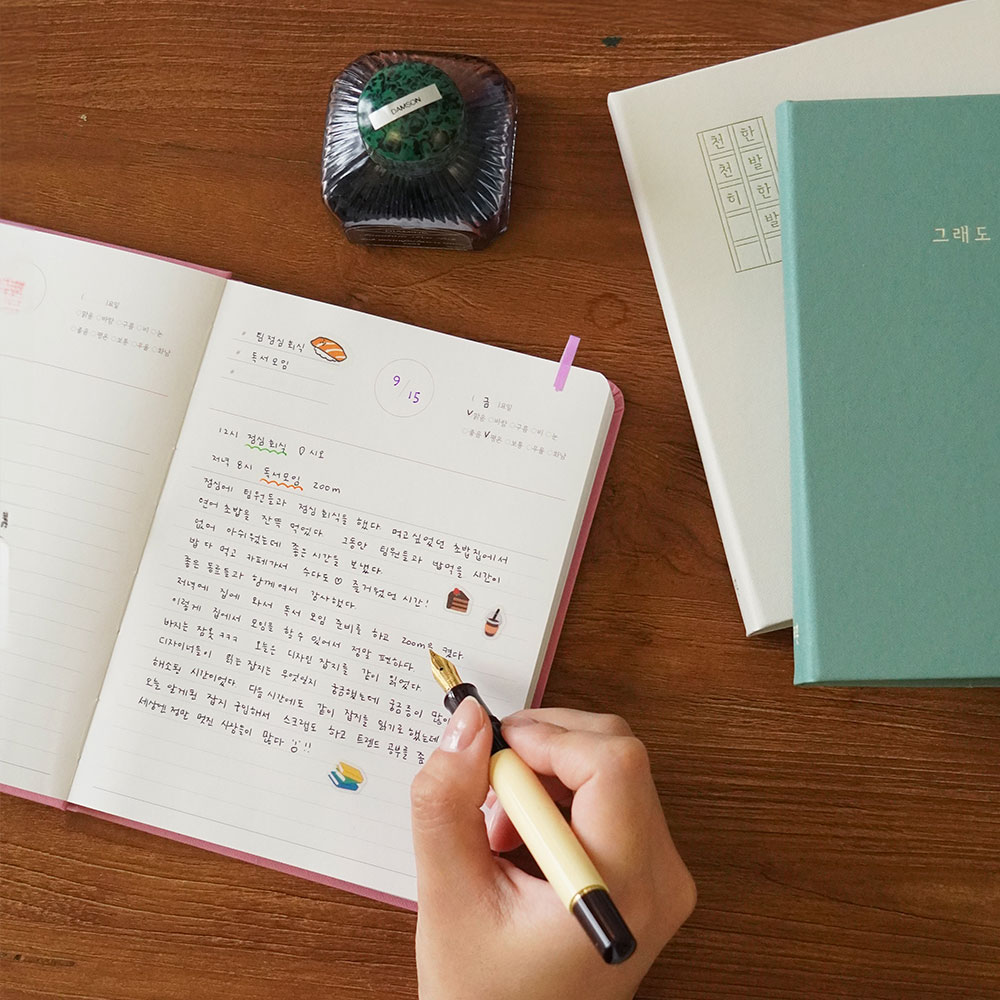 DAMSON
한발한발
천천히
그래도
( )요일
○맑음 ○바람 ○구름 ○비 ○눈
○좋음 ○평온 ○보통 ○우울 ○화남
* 팀점심회식
* 독서모임
*
9/15
( 금 )요일
V맑음 ○바람 ○구름 ○비 ○눈
○좋음 V평온 ○보통 ○우울 ○화남
12시 점심 회식 시오
저녁 8시 독서모임 zoom
점심에 팀원들과 점심 회식을 했다. 먹고싶었던 초밥집에서
연어 초밥을 잔뜩 먹었다. 그동안 팀원들과 밥먹을 시간이
없어 아쉬웠는데 좋은 시간을 보냈다.
밥 다 먹고 카페가서 수다도♡ 즐거웠던 시간!
좋은 동료들과 함께여서 감사했다.
저녁에 집에 와서 독서 모임 준비를 하고 zoom을 켰다.
이렇게 집에서 모임을 할 수 있어서 정말 편하다.
바지는 잠옷 ㅋㅋㅋ 오늘은 디자인 잡지를 같이 읽었다.
디자이너들이 읽는 잡지는 무엇일지 궁금했는데 궁금증이 많이
해소된 시간이었다. 다음 시간에도 같이 잡지를 읽기로 했는데
오늘 알게된 잡지 구입해서 스크랩도 하고 트렌드 공부를 좀
세상엔 정말 멋진 사람들이 많다 !!